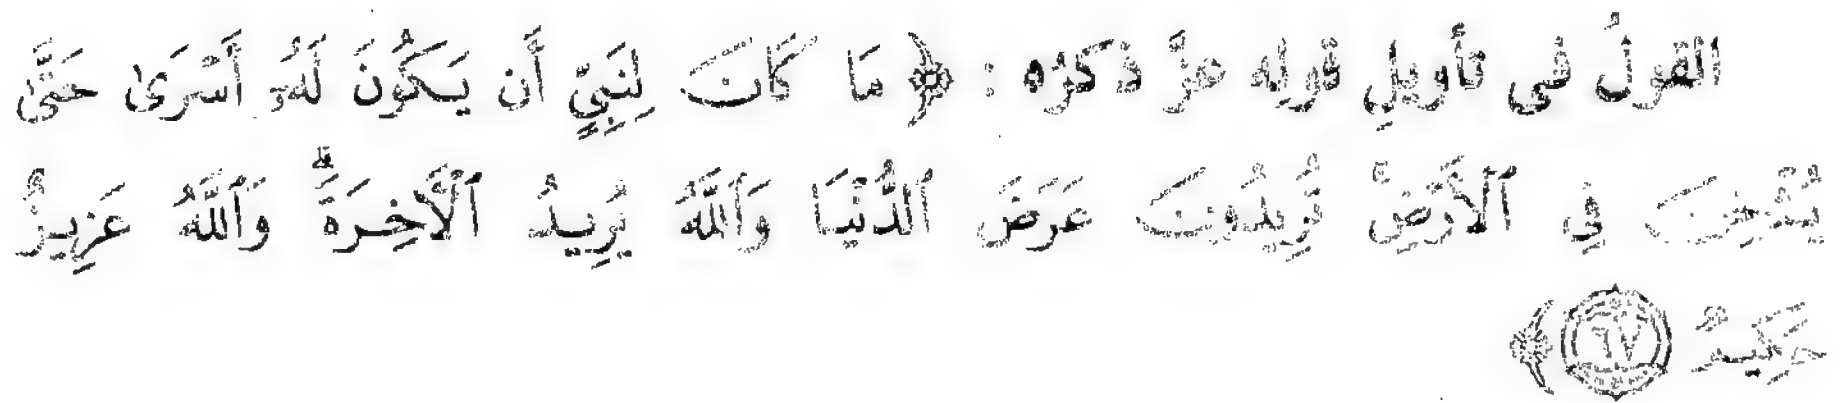 القولُ فى تأويلِ قولِه عزَّ ذكرُه : ﴿ مَا كَانَ لِنَبِيٍّ أَن يَكُونَ لَهُۥٓ أَسْرَىٰ حَتَّىٰ
يُثْخِنَ فِي ٱلْأَرْضِ تُرِيدُونَ عَرَضَ ٱلدُّنْيَا وَٱللَّهُ يُرِيدُ ٱلْـَٔاخِرَةَ ۗ وَٱللَّهُ عَزِيزٌ
حَكِيمٌ ٦٧ ﴾